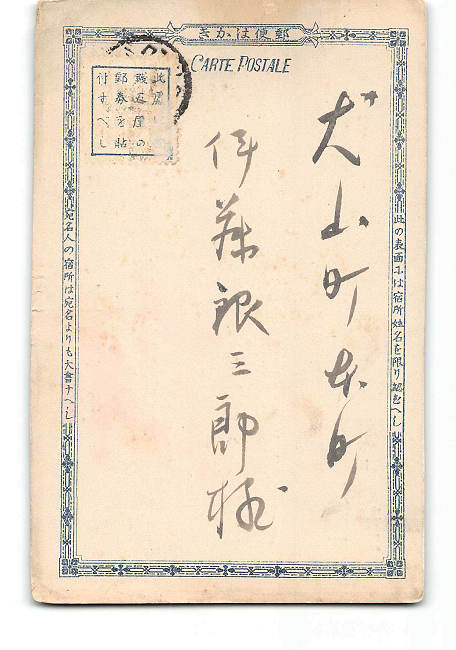 郵便はかき
CARTE POSTALE
此處
錢五厘の
郵券を貼
付すへし
此の表面には宿所姓名を限り認むへし
犬山町本町
伊藤銀三郎様
宛名人の宿所は宛名よりも大書すへし